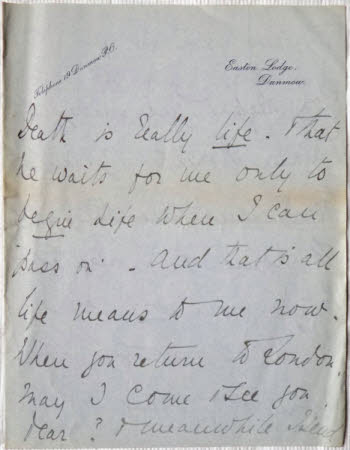 Telephone 19 Dunmow P.O.
Easton Lodge.
Dunmow.
Death is really life. & that
he waits for me only to
begin life when I can
'pass on'. And that is all
life means to me now.
When you return to London
may I come & see you
dear? & meanwhile I